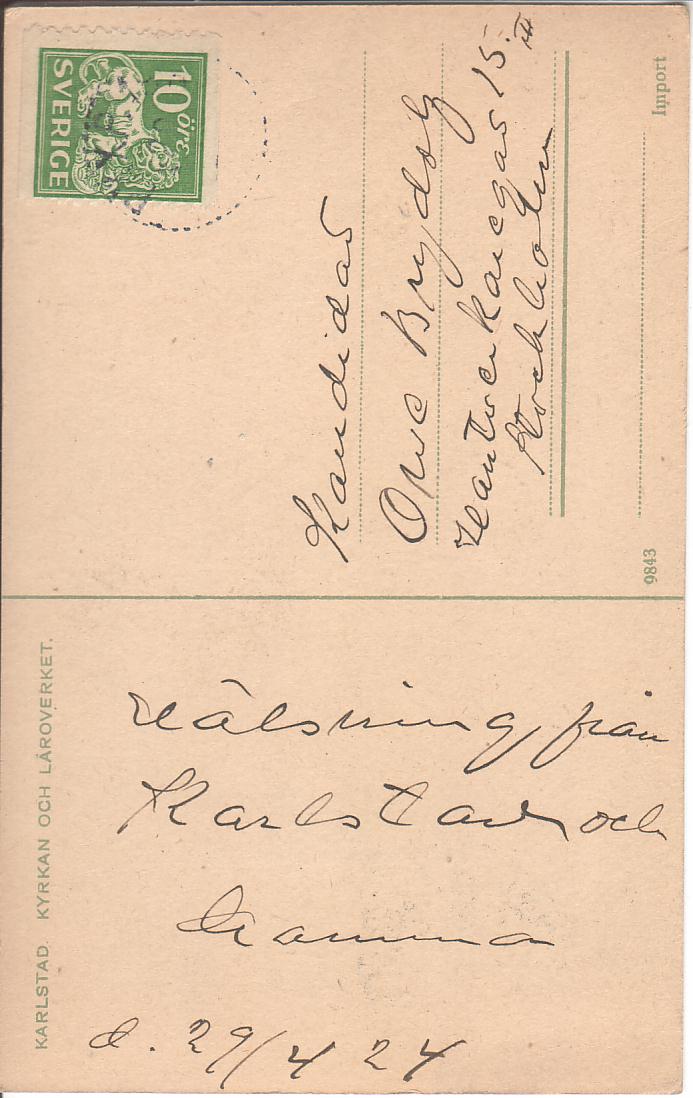 KARLSTAD. KYRKAN OCH LÄROVERKET.
Hälsning från
Karlstad och
Mamma
d. 29/4 24
10 ÖRE
SVERIGE
Kandidat
Ove
15. II
Stockholm
9843
Import